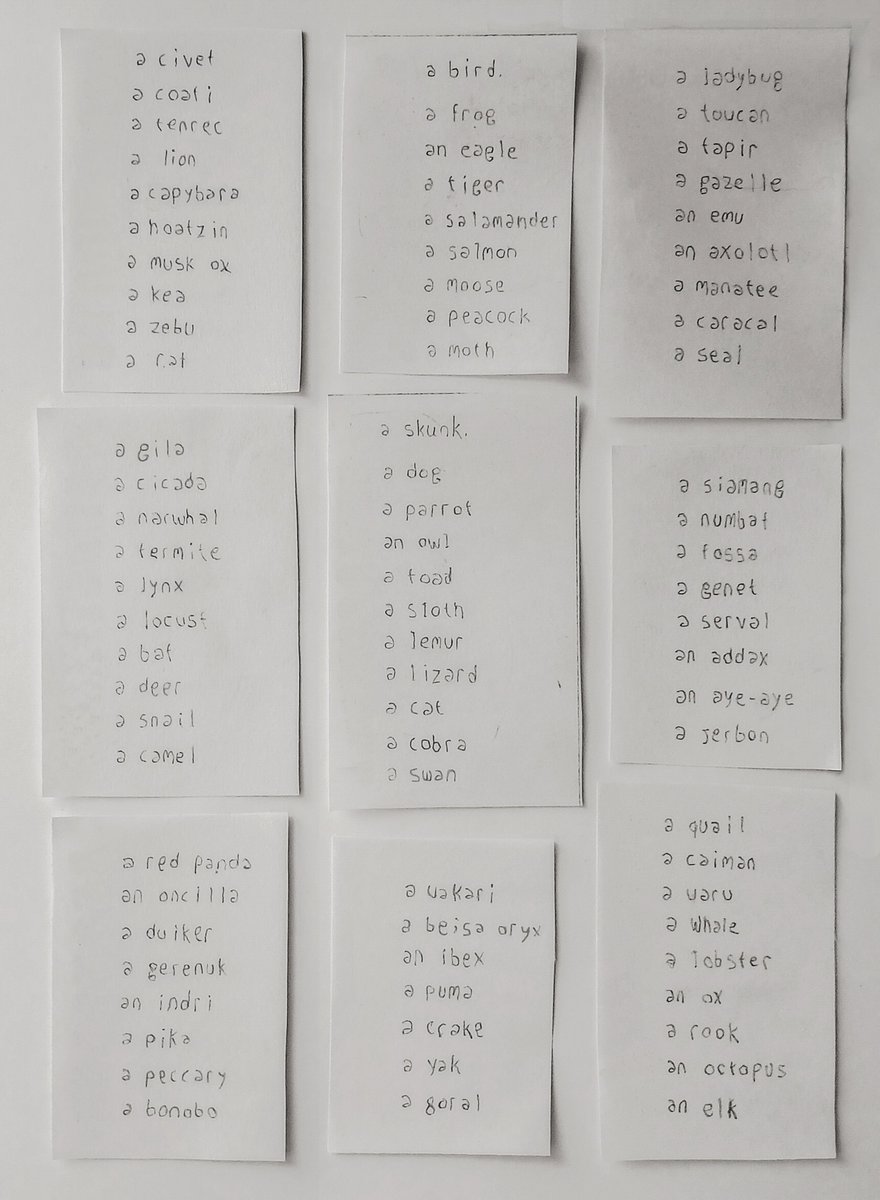 a civet
a coati
a tenrec
a lion
a capybara
a hoatzin
a musk ox
a kea
a zebu
a rat
a bird.
a frog
an eagle
a tiger
a salamander
a salmon
a moose
a peacock
a moth
a ladybug
a toucan
a tapir
a gazelle
an emu
an axolotl
a manatee
a caracal
a seal
a gila
a cicada
a narwhal
a termite
a lynx
a locust
a bat
a deer
a snail
a camel
a skunk.
a dog
a parrot
an owl
a toad
a sloth
a lemur
a lizard
a cat
a cobra
a swan
a siamang
a numbat
a fossa
a genet
a serval
an addax
an aye-aye
a jerbon
a red panda
an oncilla
a duiker
a gerenuk
an indri
a pika
a peccary
a bonobo
a uakari
a beisa oryx
an ibex
a puma
a crake
a yak
a goral
a quail
a caiman
a uaru
a whale
a lobster
an ox
a rook
an octopus
an elk